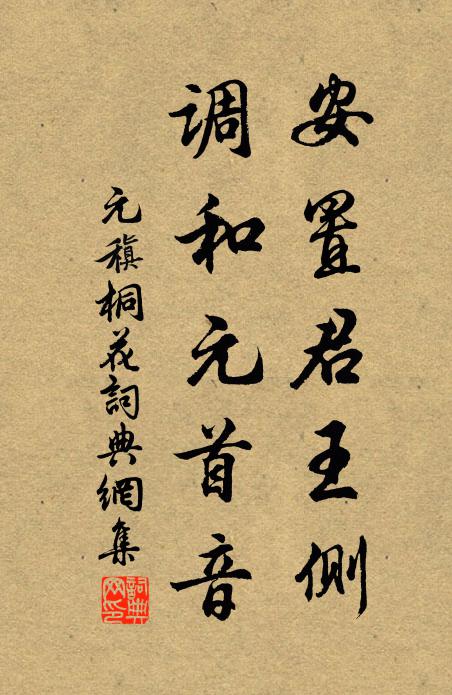 安置君王侧
调和元首音
元稹桐花詞典網集
詞典網印